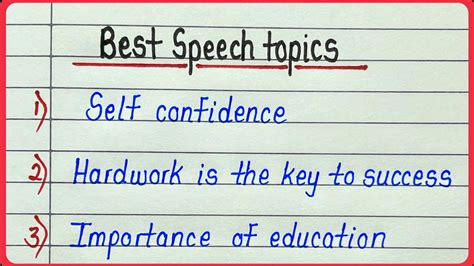 Best Speech topics
1) Self confidence
2) Hardwork is the key to success
3) Importance of education